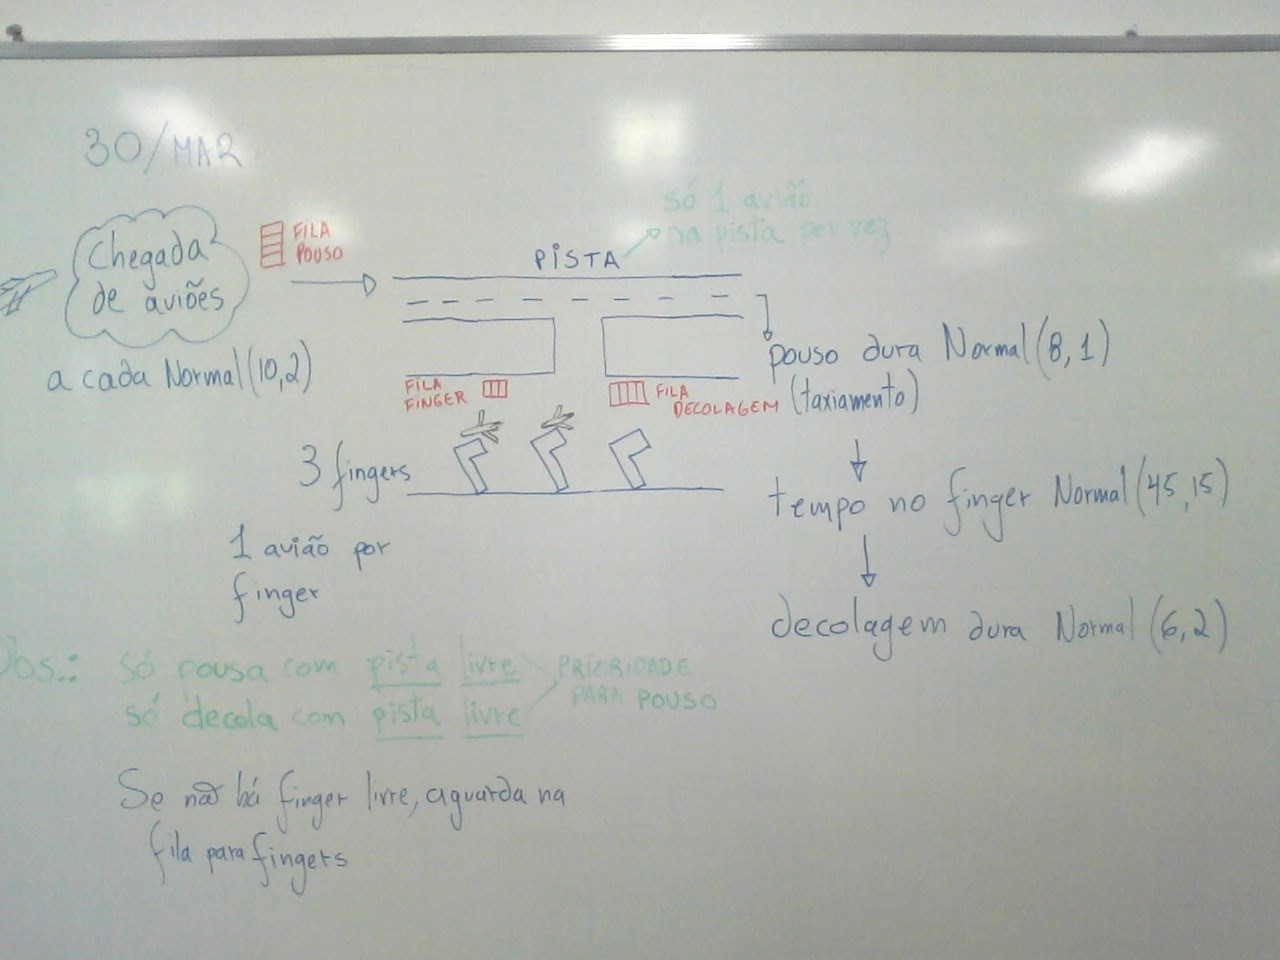 30/MAR
Chegada
de aviões
a cada Normal(10,2)
FILA
POUSO
PISTA
só 1 avião
na pista por vez
FILA
FINGER
FILA
DECOLAGEM
3 fingers
1 avião por
finger
pouso dura Normal(8,1)
(taxiamento)
tempo no finger Normal(45,15)
decolagem dura Normal(6,2)
Obs.: só pousa com pista livre
só decola com pista livre
PRIORIDADE
PARA POUSO
Se não há finger livre, aguarda na
fila para fingers